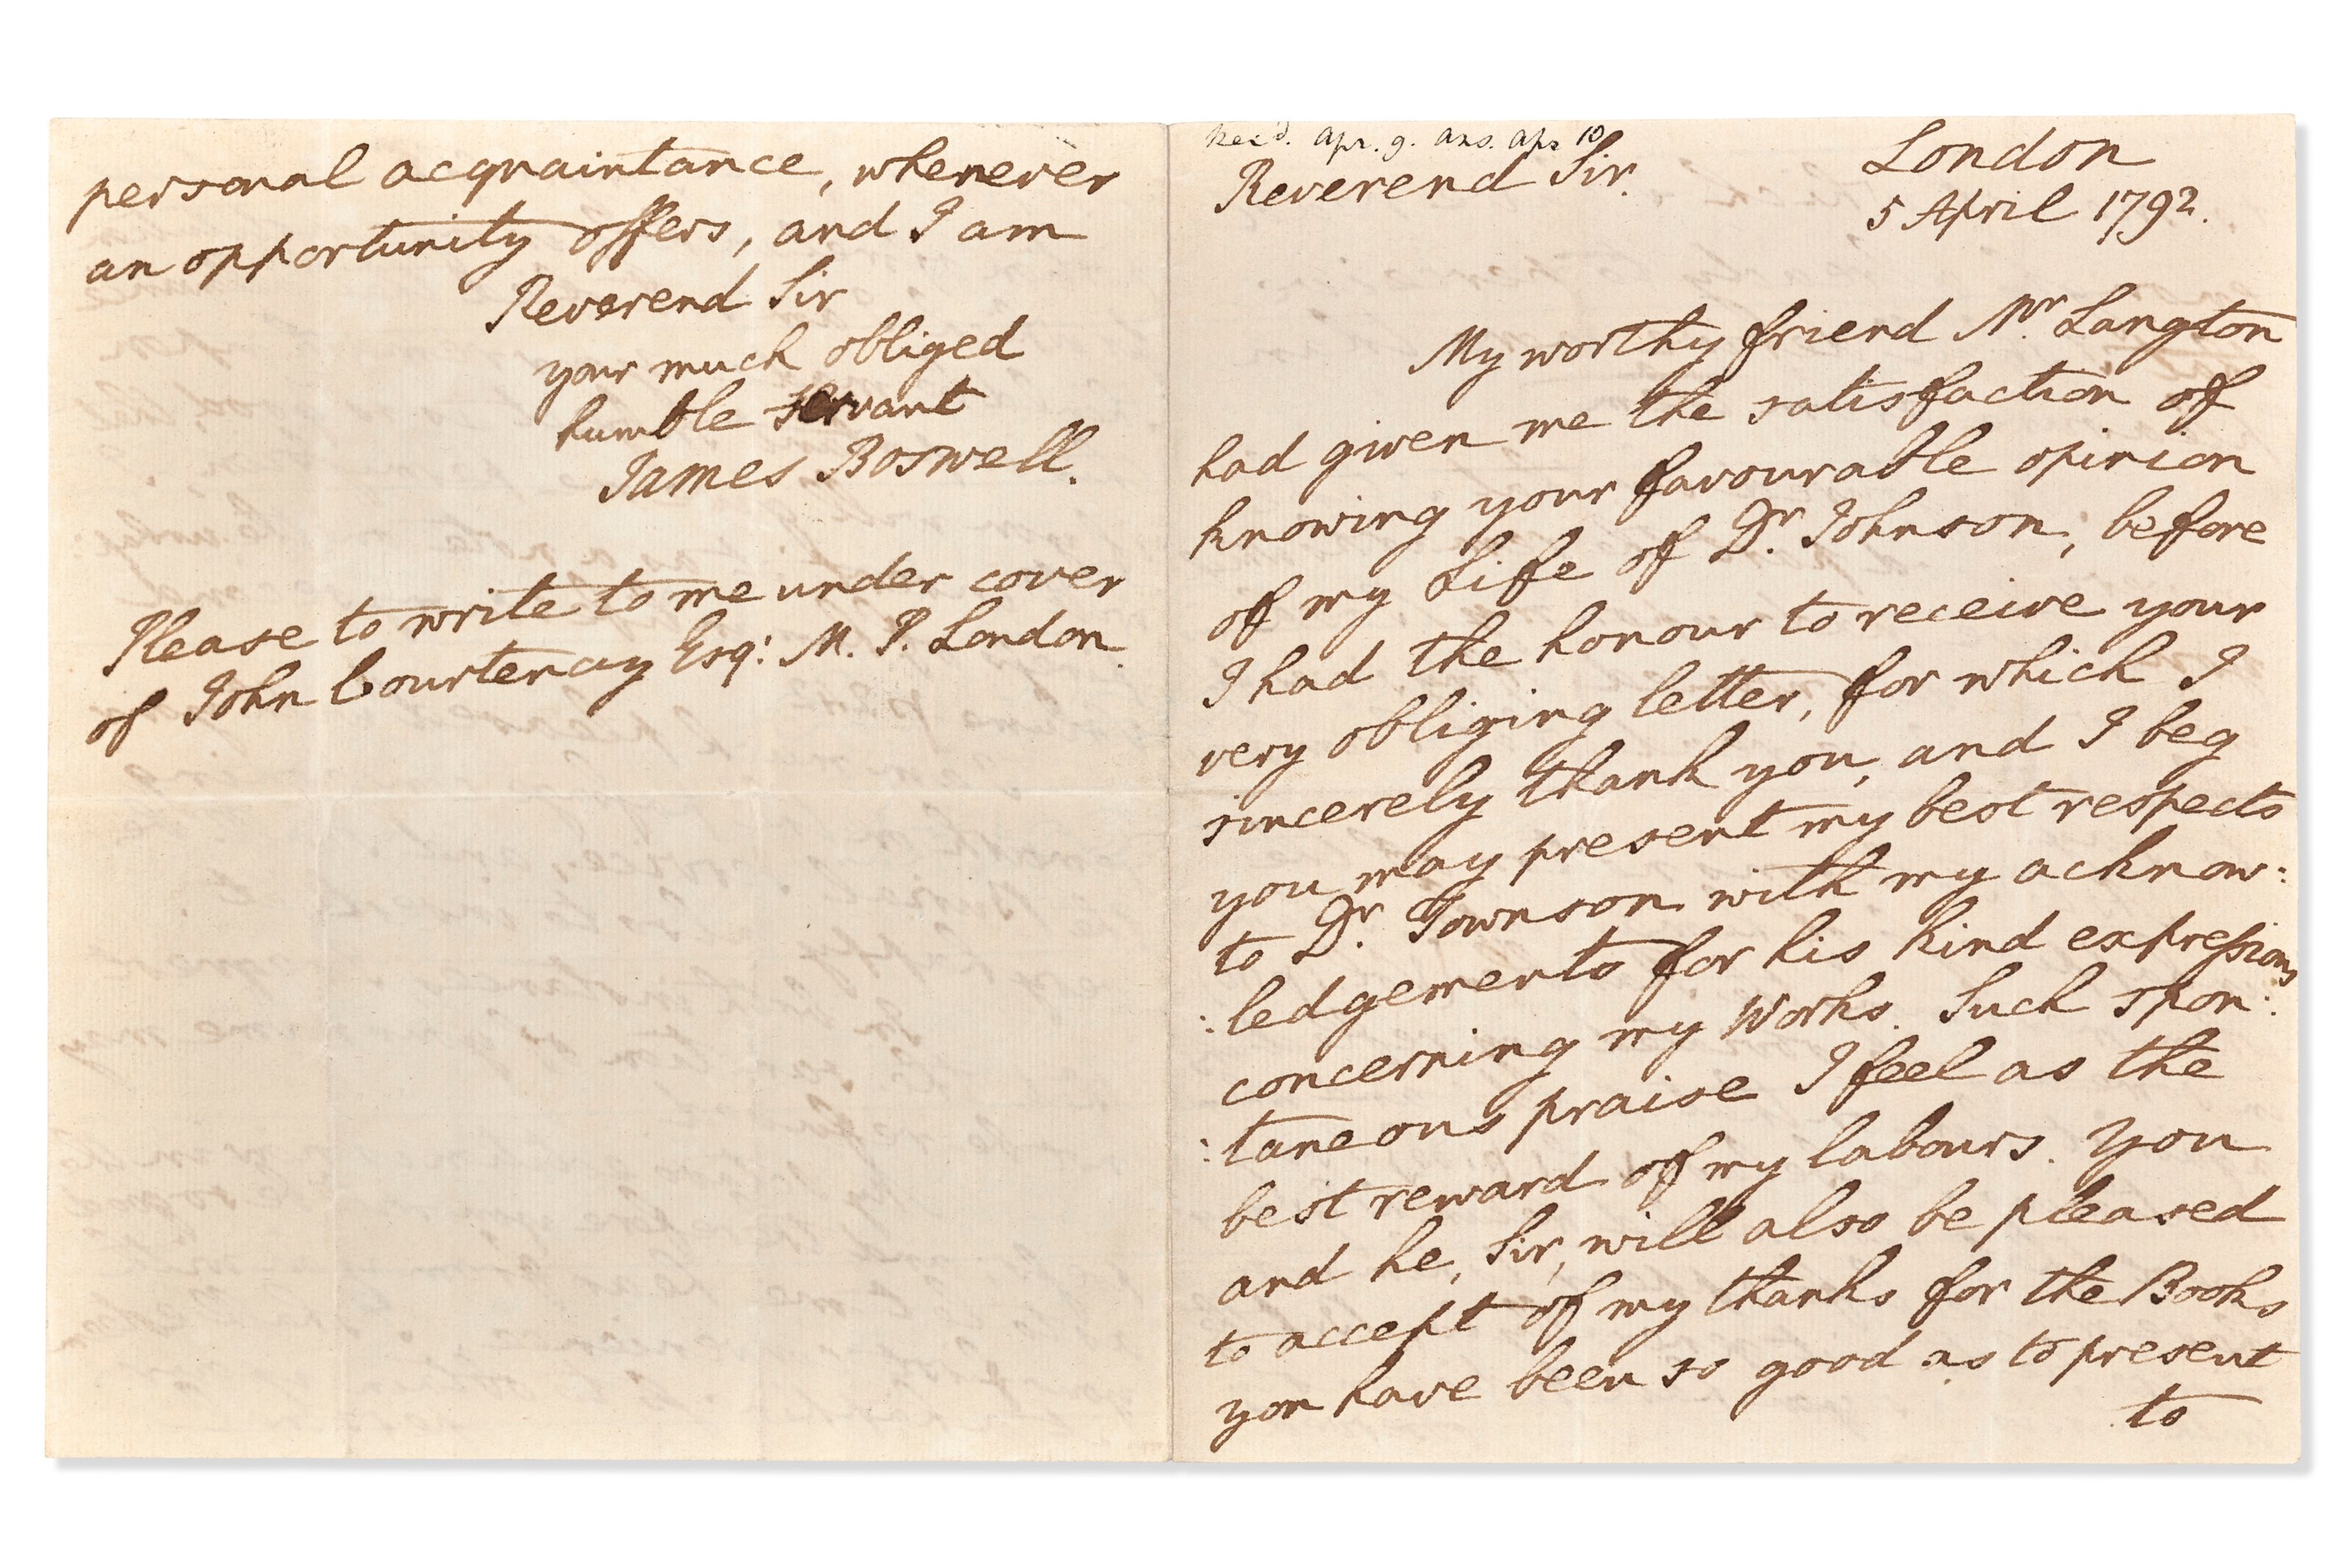 Recd. Apr. 9. ans. Apr 10
Reverend Sir.
London
5 April 1792.
My worthy friend Mr. Langton
had given me the satisfaction of
knowing your favourable opinion
of my Life of Dr. Johnson, before
I had the honour to receive your
very obliging letter, for which I
sincerely thank you, and I beg
you may present my best respects
to Dr. Townson with my acknow:
:ledgements for his kind expressions
concerning my Works. Such spon:
:taneous praise I feel as the
best reward of my labours. You
and he, Sir, will also be pleased
to accept of my thanks for the Books
you have been so good as to present
to
personal acquaintance, whenever
an opportunity offers, and I am
Reverend Sir
your much obliged
humble servant
James Boswell.
Please to write to me under cover
of John Courtenay Esq: M. P. London.